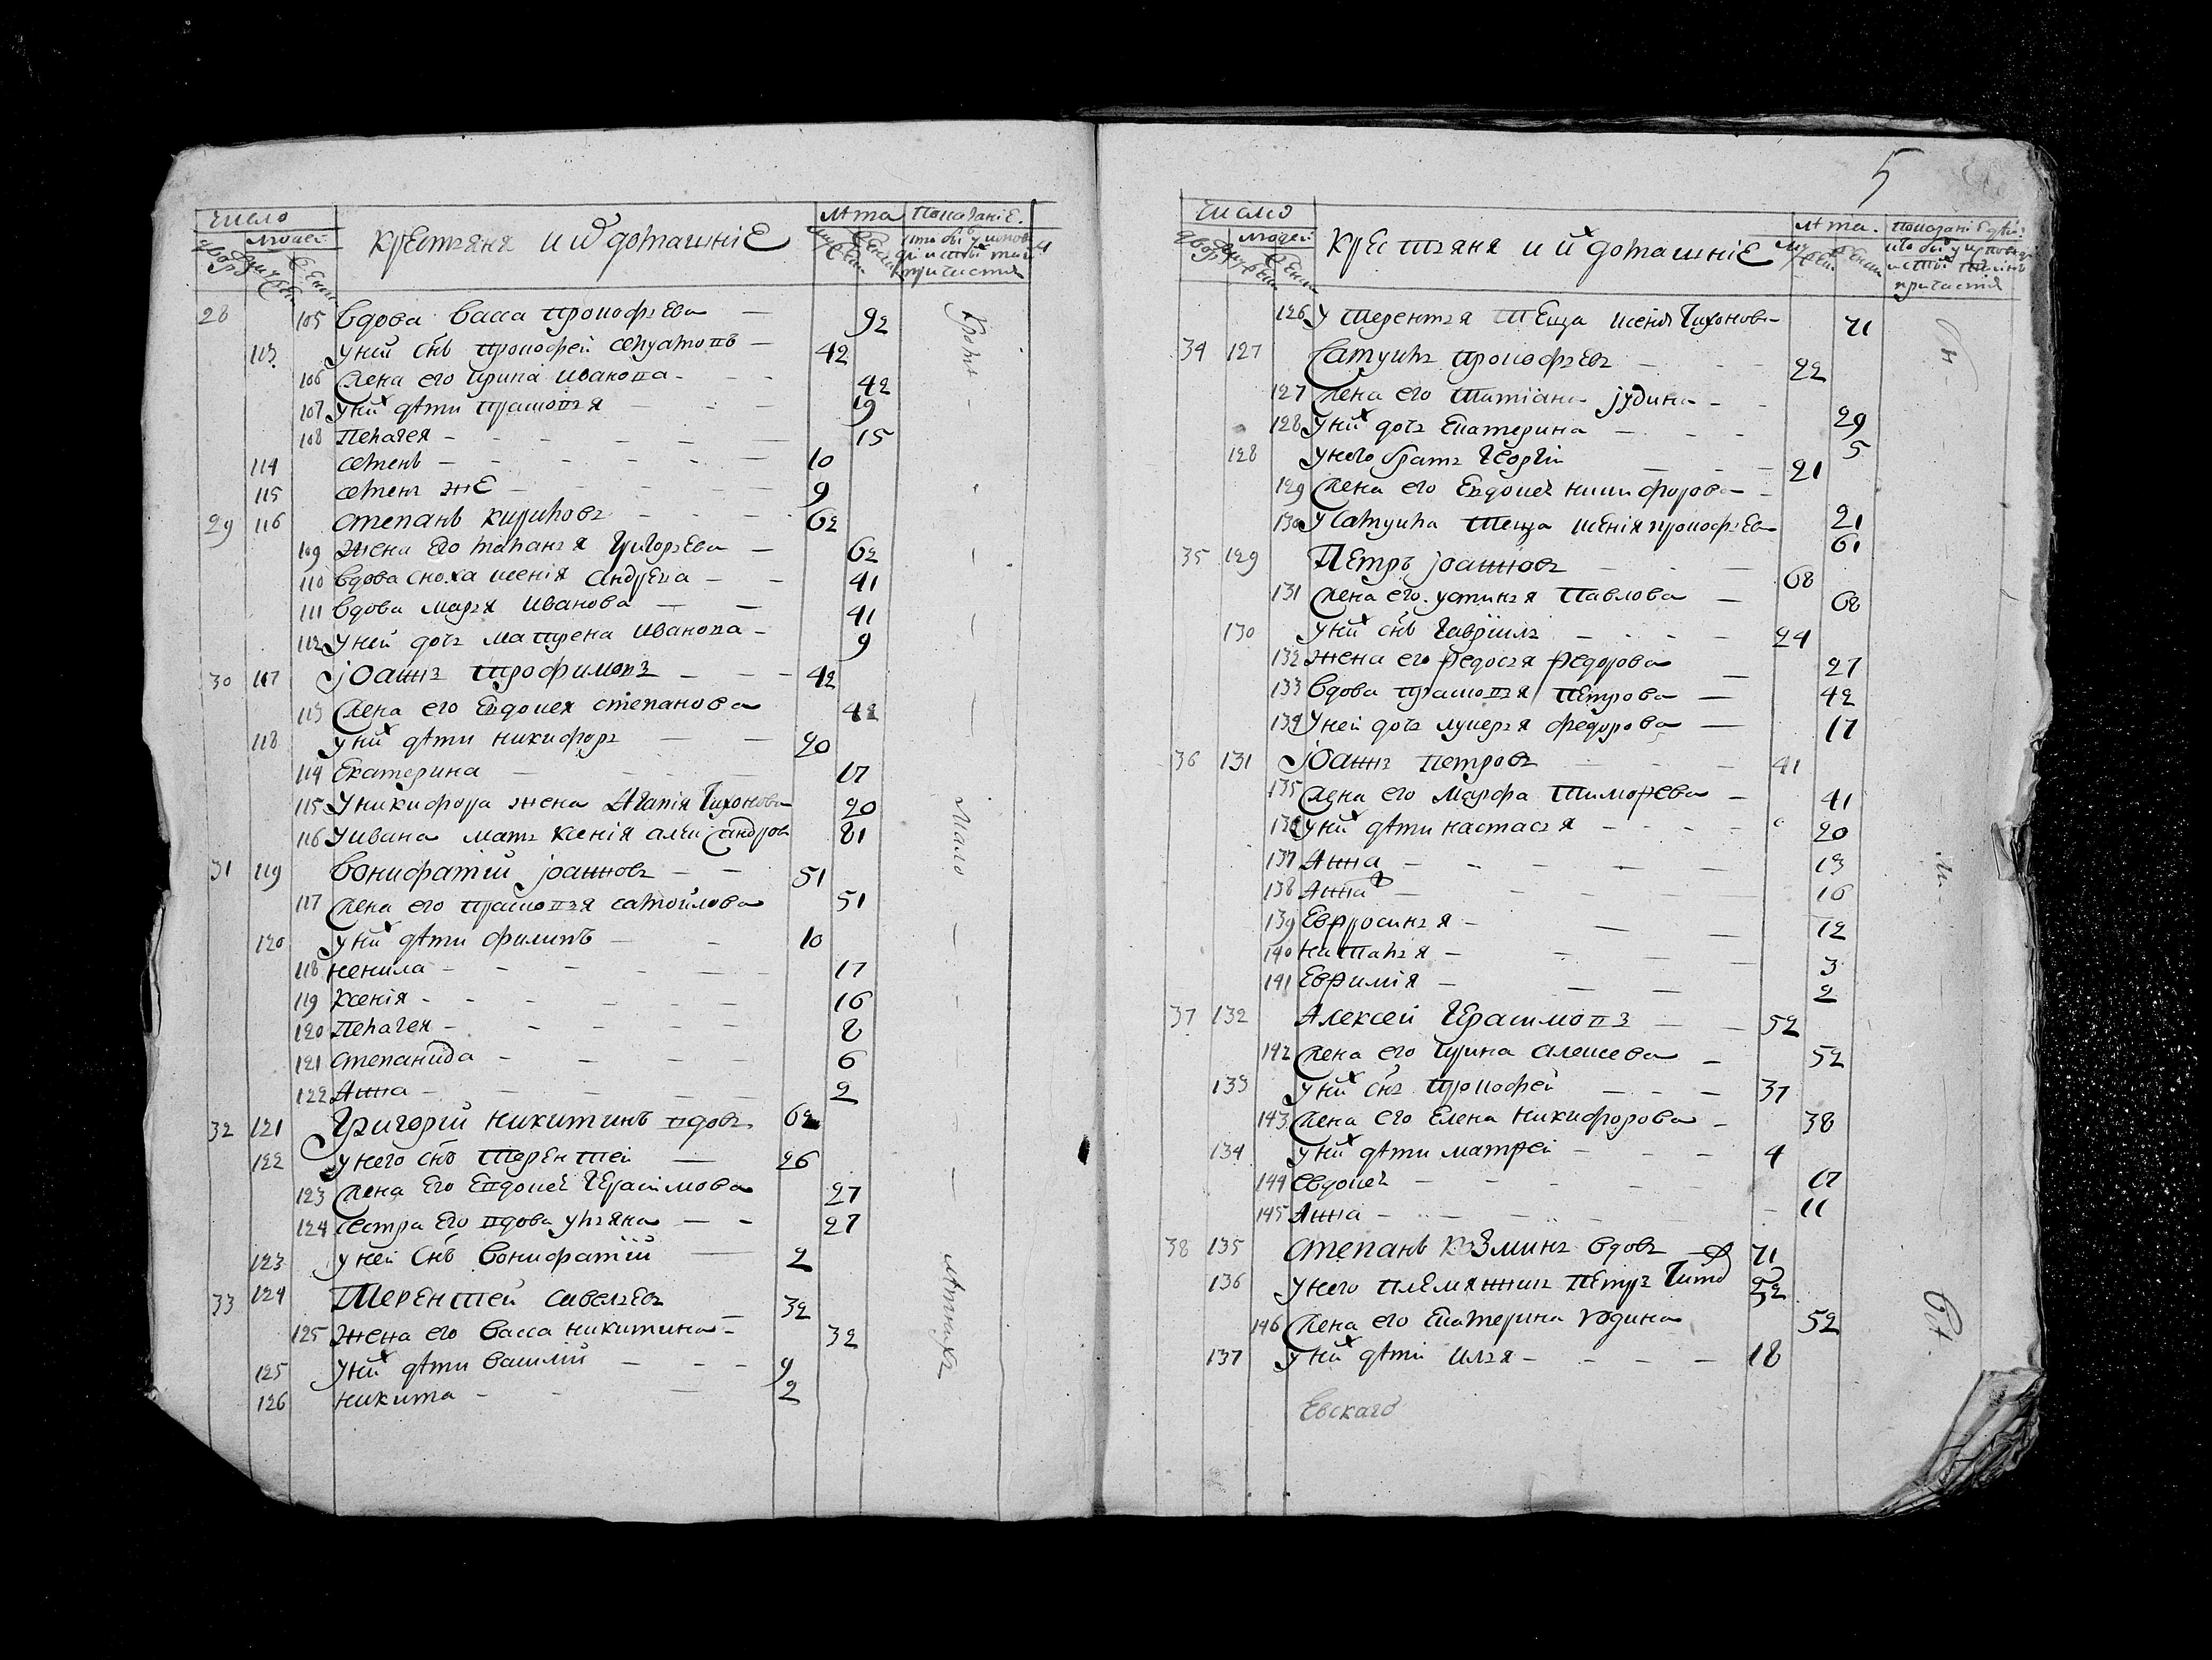 число
людей
крестьяня и их домашніе
лѣта
Показаніе
28 105 вдова васса прокофьева — 92
113 у ней снъ прокофей самуйловъ — 42
106 жена его ирина иванова — 42
107 у них дѣти прасковья — 19
108 пелагея — 15
114 семенъ — 10
115 семенъ же — 9
29 116 степанъ кириловъ — 62
109 жена его маланья григорьева — 62
110 вдова сноха ксенія андреева — 41
111 вдова марья иванова — 41
112 у ней дочь матрена иванова — 9
30 117 Іоаннъ трофимовъ — 42
113 жена его евдокея степанова 42
118 у них дѣти никифоръ — 20
114 екатерина — 17
115 у никифора жена агапія тихонова 20
116 у ивана мать ксенія александров 81
31 119 вонифатій іоанновъ — 51
117 жена его прасковья самойлова 51
120 у них дѣти филипъ — 10
118 ненила — 17
119 ксенія — 16
120 пелагея — 8
121 степанида — 6
122 анна — 2
32 121 Григорій никитинъ вдовъ 62
122 у него снъ терентей — 26
123 жена его евдокея герасимова 27
124 сестра его вдова ульяна — 27
123 у ней снъ вонифатій — 2
33 124 Терентей савельевъ — 32
125 жена его васса никитина — 32
125 у них дѣти василій — 9
126 никита — 2
Кромѣ
Мало
лѣтнихъ
5
число
людей
крестьяня и их домашніе
лѣта.
126 у терентья теща ксенія тихонова 71
34 127 Самуилъ прокофьевъ — 22
127 жена его татіана іудина — 29
128 у них дочь екатерина — 5
128 у него братъ георгій — 21
129 жена его евдокея никифорова — 21
130 у самуила теща ксенія прокофьева 61
35 129 Петръ іоанновъ — 68
131 жена его устинья павлова — 68
130 у них снъ гавріилъ — 24
132 жена его федосья федорова — 27
133 вдова прасковья петрова — 42
134 у ней дочь лукерья федорова — 17
36 131 Іоаннъ петровъ — 41
135 жена его марфа тимофева — 41
136 у них дѣти настасья — 20
137 анна — 13
138 анна — 16
139 евфросинья — 12
140 наталья — 3
141 евфимія — 2
37 132 Алексей герасимовъ — 52
142 жена его ирина алексева — 52
133 у них снъ прокофей — 37
143 жена его елена никифорова — 38
134 у них дѣти матфей — 4
144 евдокея — 17
145 анна — 11
38 135 степанъ козминъ вдовъ — 71
136 у него племянник петръ титов 52
146 жена его екатерина родина 52
137 у них дѣти илья — 18
Евскаго